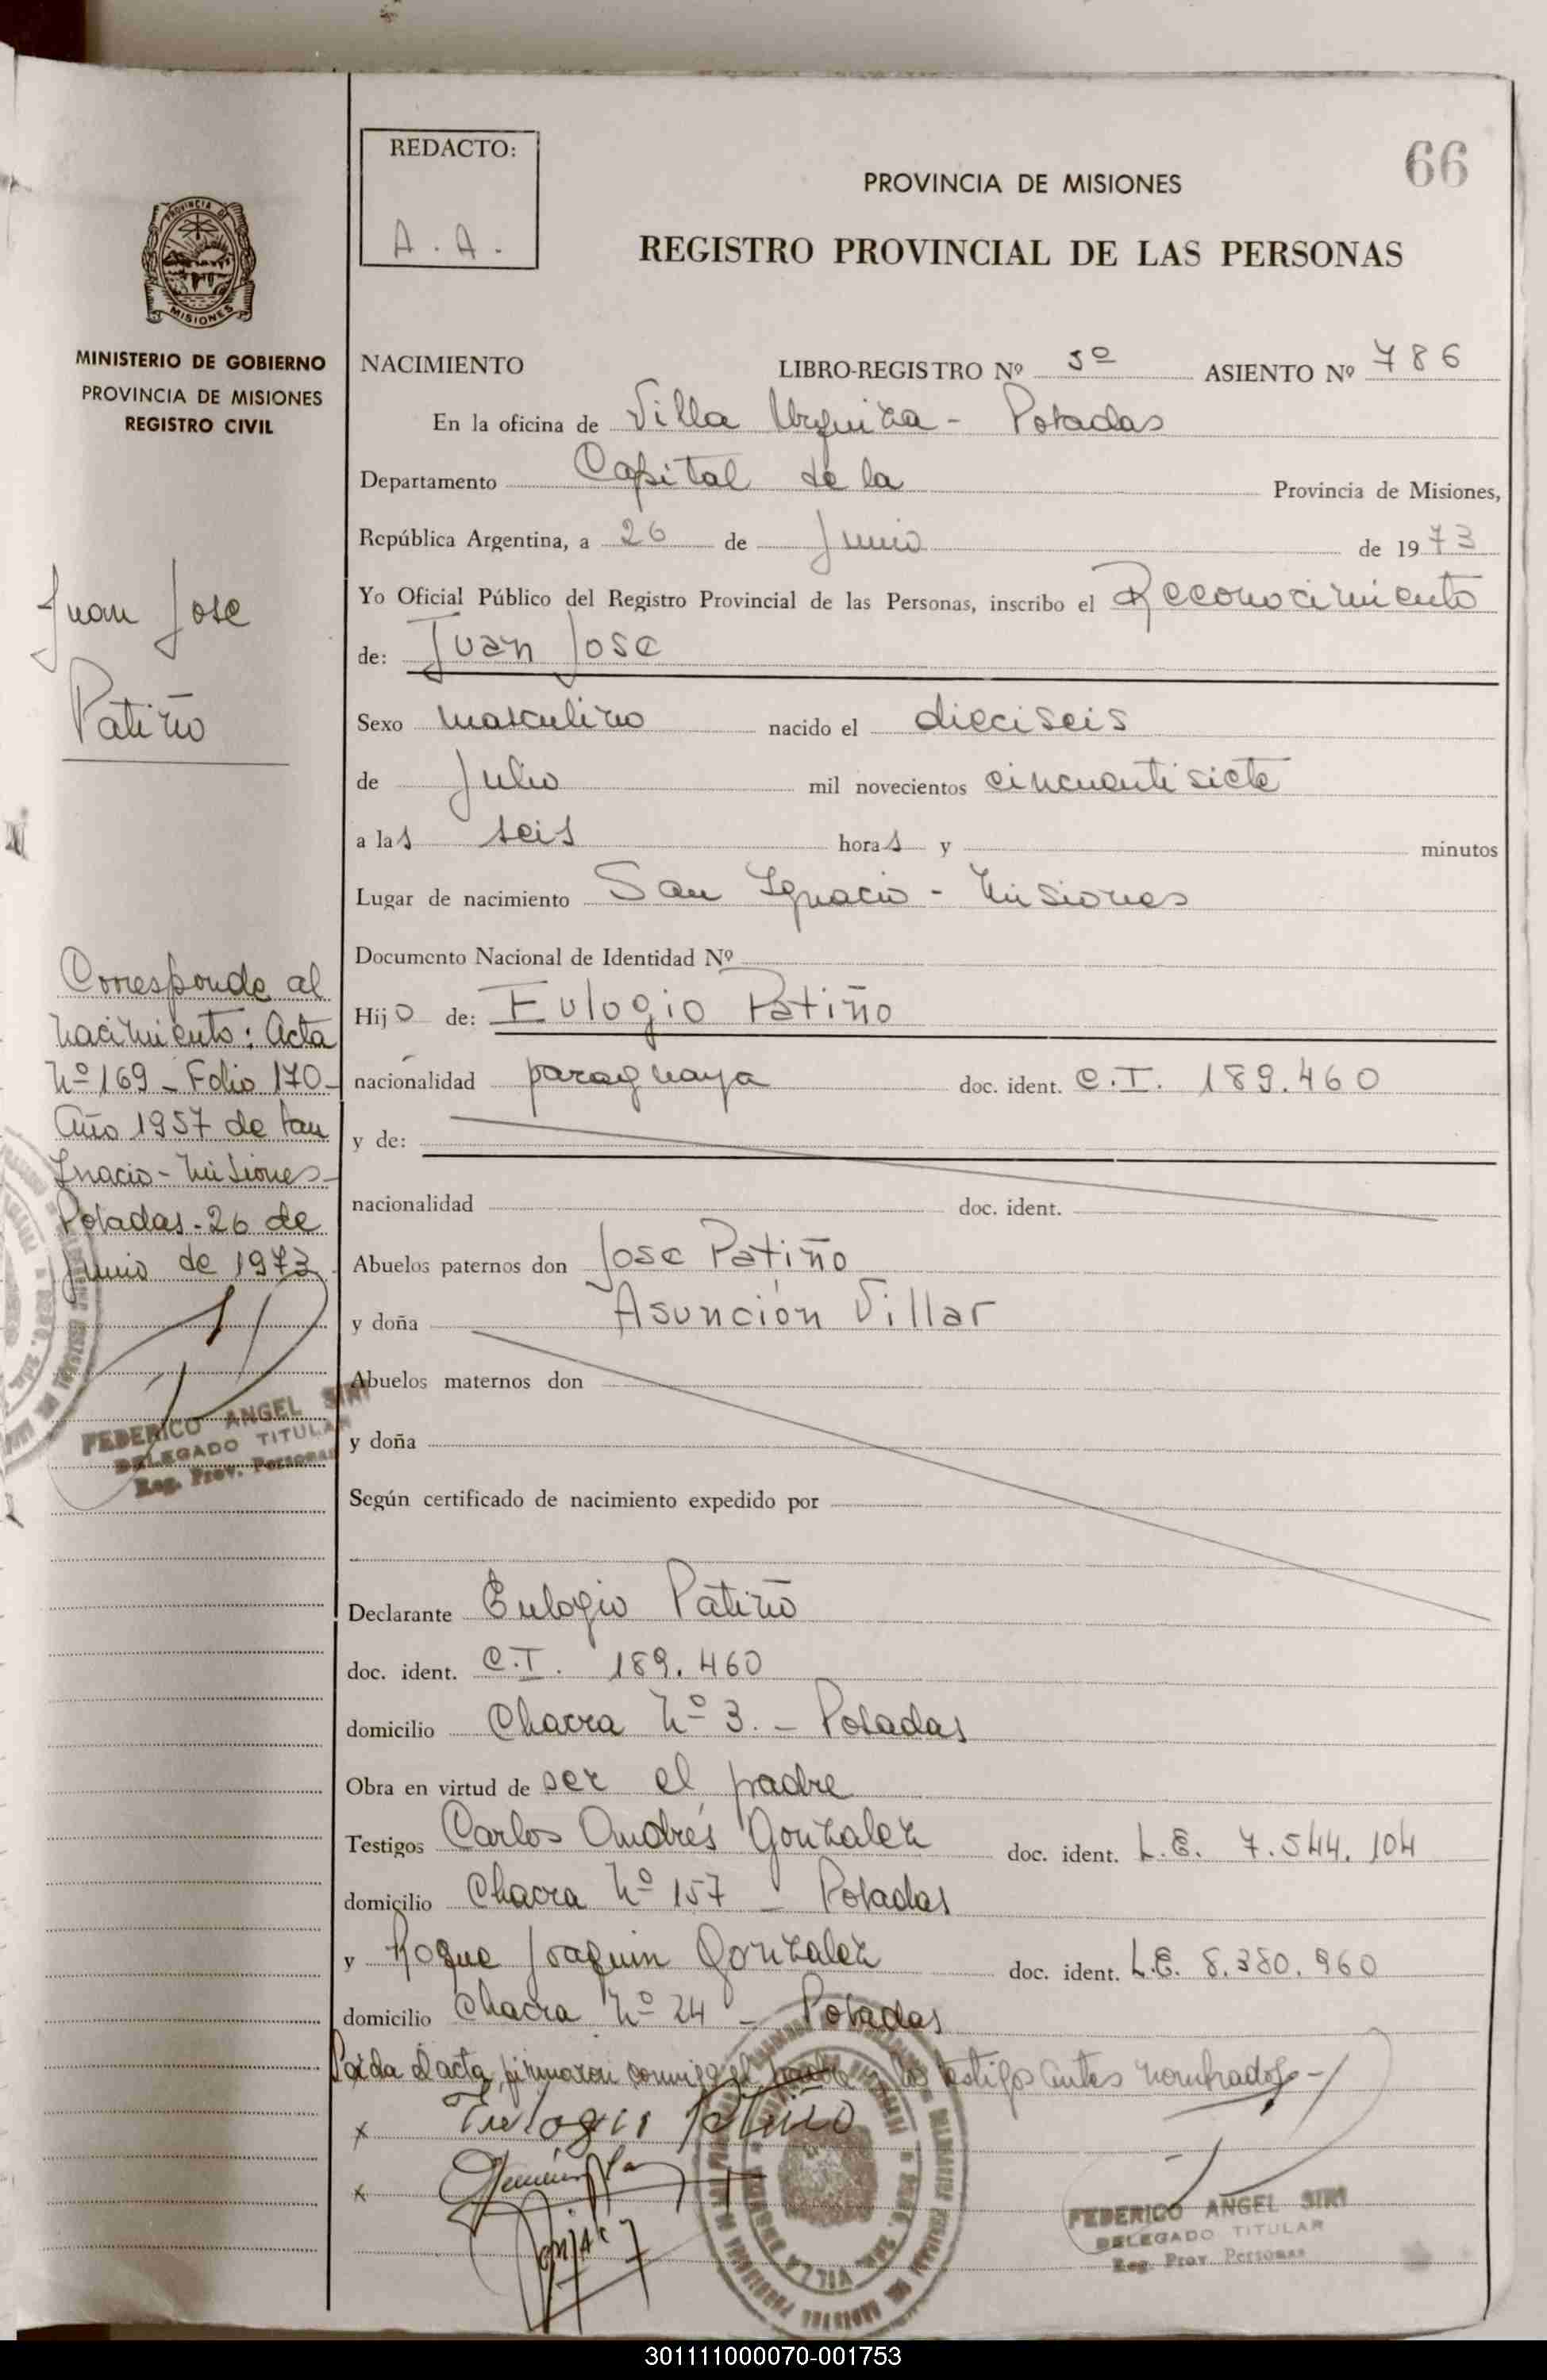 66
REDACTO:
A. A.
PROVINCIA DE MISIONES
REGISTRO PROVINCIAL DE LAS PERSONAS
PROVINCIA DE
MISIONES
MINISTERIO DE GOBIERNO
PROVINCIA DE MISIONES
REGISTRO CIVIL
Juan Jose
Patiño
Corresponde al
nacimiento: Acta
Nº 169 - Folio 170 -
Año 1957 de San
Ignacio - Misiones -
Posadas - 26 de
Junio de 1973
FEDERICO ANGEL SIRI
DELEGADO TITULAR
Reg. Prov. Personas
NACIMIENTO LIBRO-REGISTRO Nº 3º ASIENTO Nº 786
En la oficina de Villa Urquiza - Posadas
Departamento Capital de la Provincia de Misiones,
República Argentina, a 26 de Junio de 1973
Yo Oficial Público del Registro Provincial de las Personas, inscribo el Reconocimiento
de: Juan Jose
Sexo masculino nacido el dieciseis
de Julio mil novecientos cincuentisiete
a las seis horas y minutos
Lugar de nacimiento San Ignacio - Misiones
Documento Nacional de Identidad Nº
Hijo de: Eulogio Patiño
nacionalidad paraguaya doc. ident. C.I. 189.460
y de:
nacionalidad doc. ident.
Abuelos paternos don Jose Patiño
y doña Asunción Villar
Abuelos maternos don
y doña
Según certificado de nacimiento expedido por
Declarante Eulogio Patiño
doc. ident. C.I. 189.460
domicilio Chacra Nº 3. - Posadas
Obra en virtud de ser el padre
Testigos Carlos Andrés Gonzalez doc. ident. L.E. 7.544.104
domicilio Chacra Nº 157 - Posadas
y Roque Joaquin Gonzalez doc. ident. L.E. 8.380.960
domicilio Chacra Nº 24 - Posadas
Leída el acta, firmaron conmigo el padre los testigos antes nombrados -
x Eulogio Patiño
x
FEDERICO ANGEL SIRI
DELEGADO TITULAR
Reg. Prov. Personas
301111000070-001753